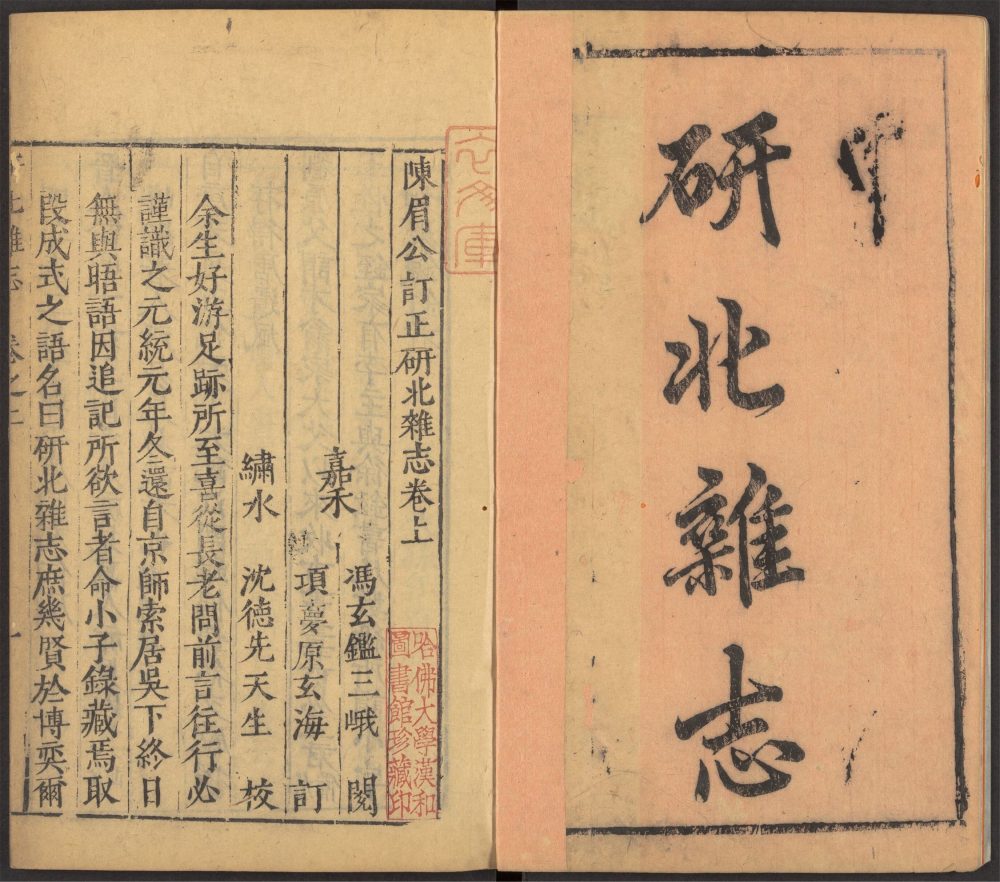 研北雜志
陳眉公訂正研北雜志卷上
嘉禾
馮玄鑑三峨 閱
項夢原玄海 訂
繡水 沈德先天生 校
余生好游足跡所至喜從長老問前言往行必
謹識之元統元年冬還自京師索居吳下終日
無與晤語因追記所欲言者命小子錄藏焉取
段成式之語名曰研北雜志庶幾賢於博奕爾
北雜志 卷之上 一
哈佛大學漢和
圖書館珍藏印